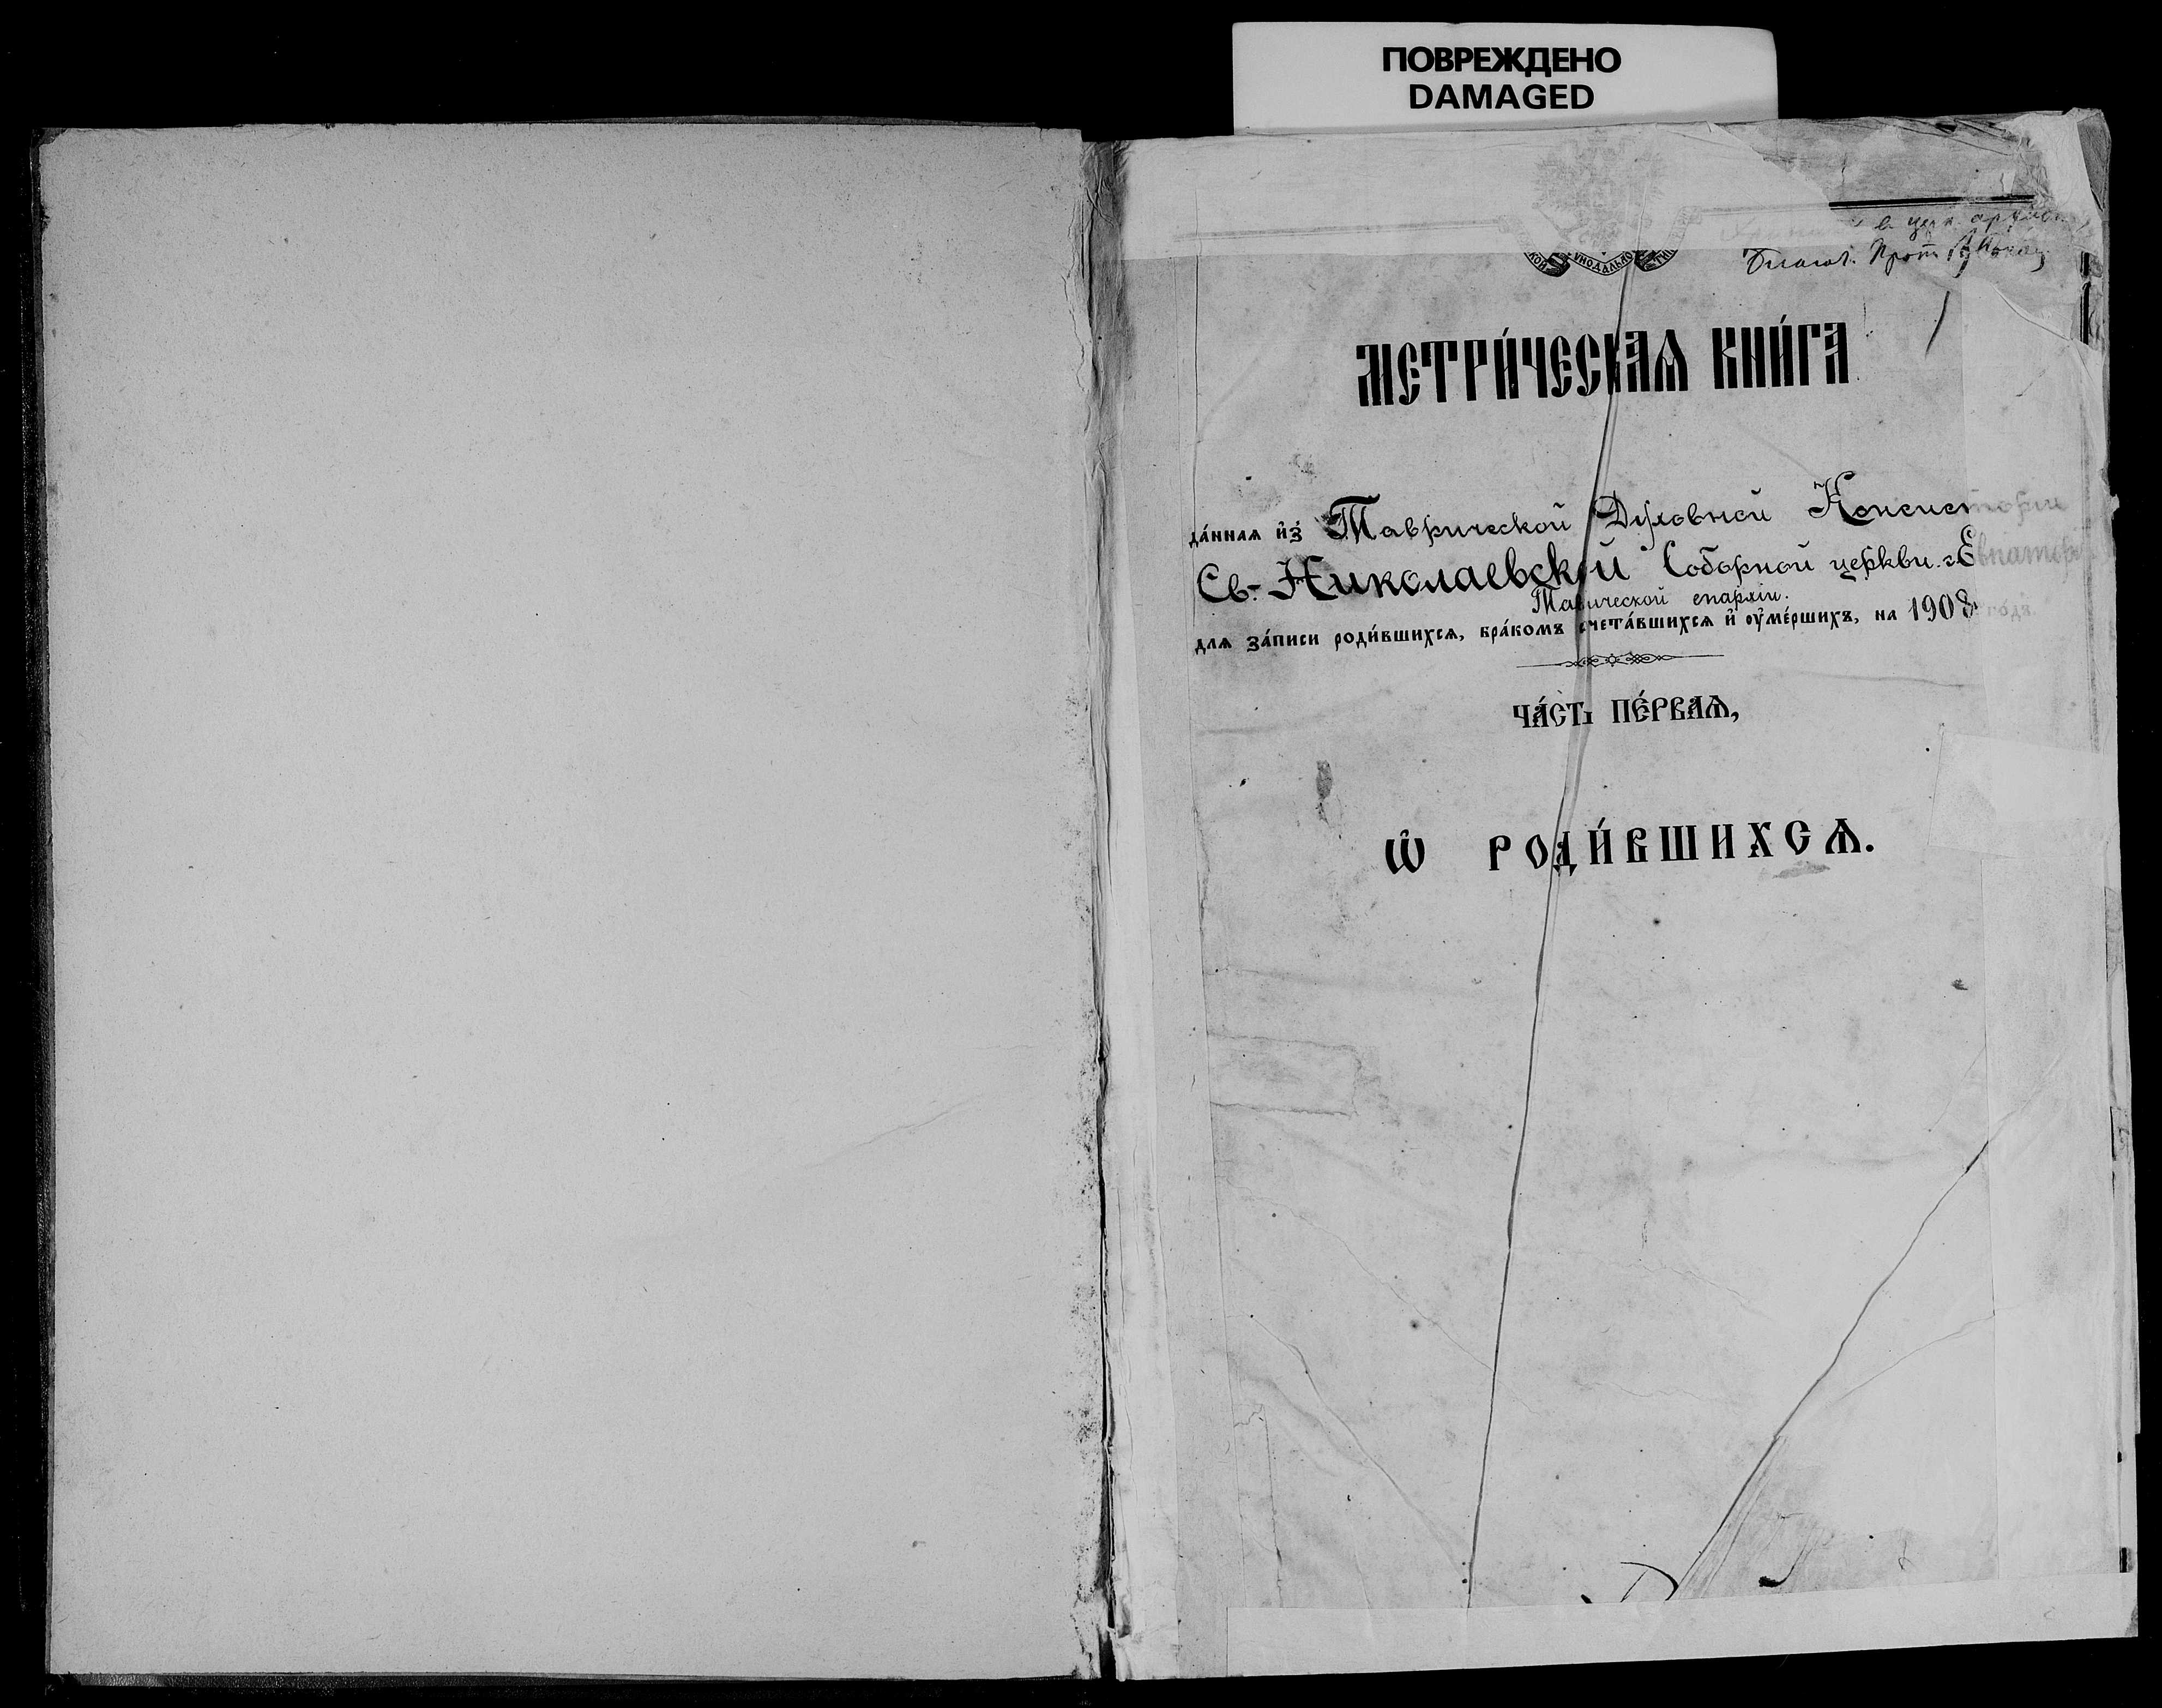 ПОВРЕЖДЕНО
DAMAGED
в церк.
Благоч. Прот.
МЕТРИ́ЧЕСКАѦ КНИ́ГА
да́ннаѧ и҆з̾ Таврической Духовной Консистории
Св.-Николаевской Соборной церкви г. Евпатории
Таврической епархіи.
длѧ за́писи роди́вшихсѧ, бра́комъ счета́вшихсѧ и҆ оу҆ме́ршихъ, на 1908 годъ.
ЧА́СТЬ ПЕ́РВАѦ,
Ѡ҆ РОДИ́ВШИХСѦ.